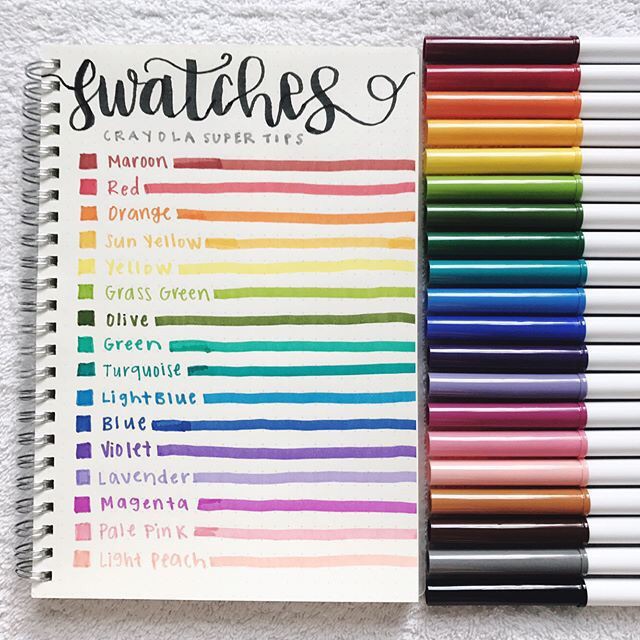 swatches
CRAYOLA SUPER TIPS
Maroon
Red
Orange
Sun Yellow
Yellow
Grass Green
Olive
Green
Turquoise
Light Blue
Blue
Violet
Lavender
Magenta
Pale Pink
Light Peach